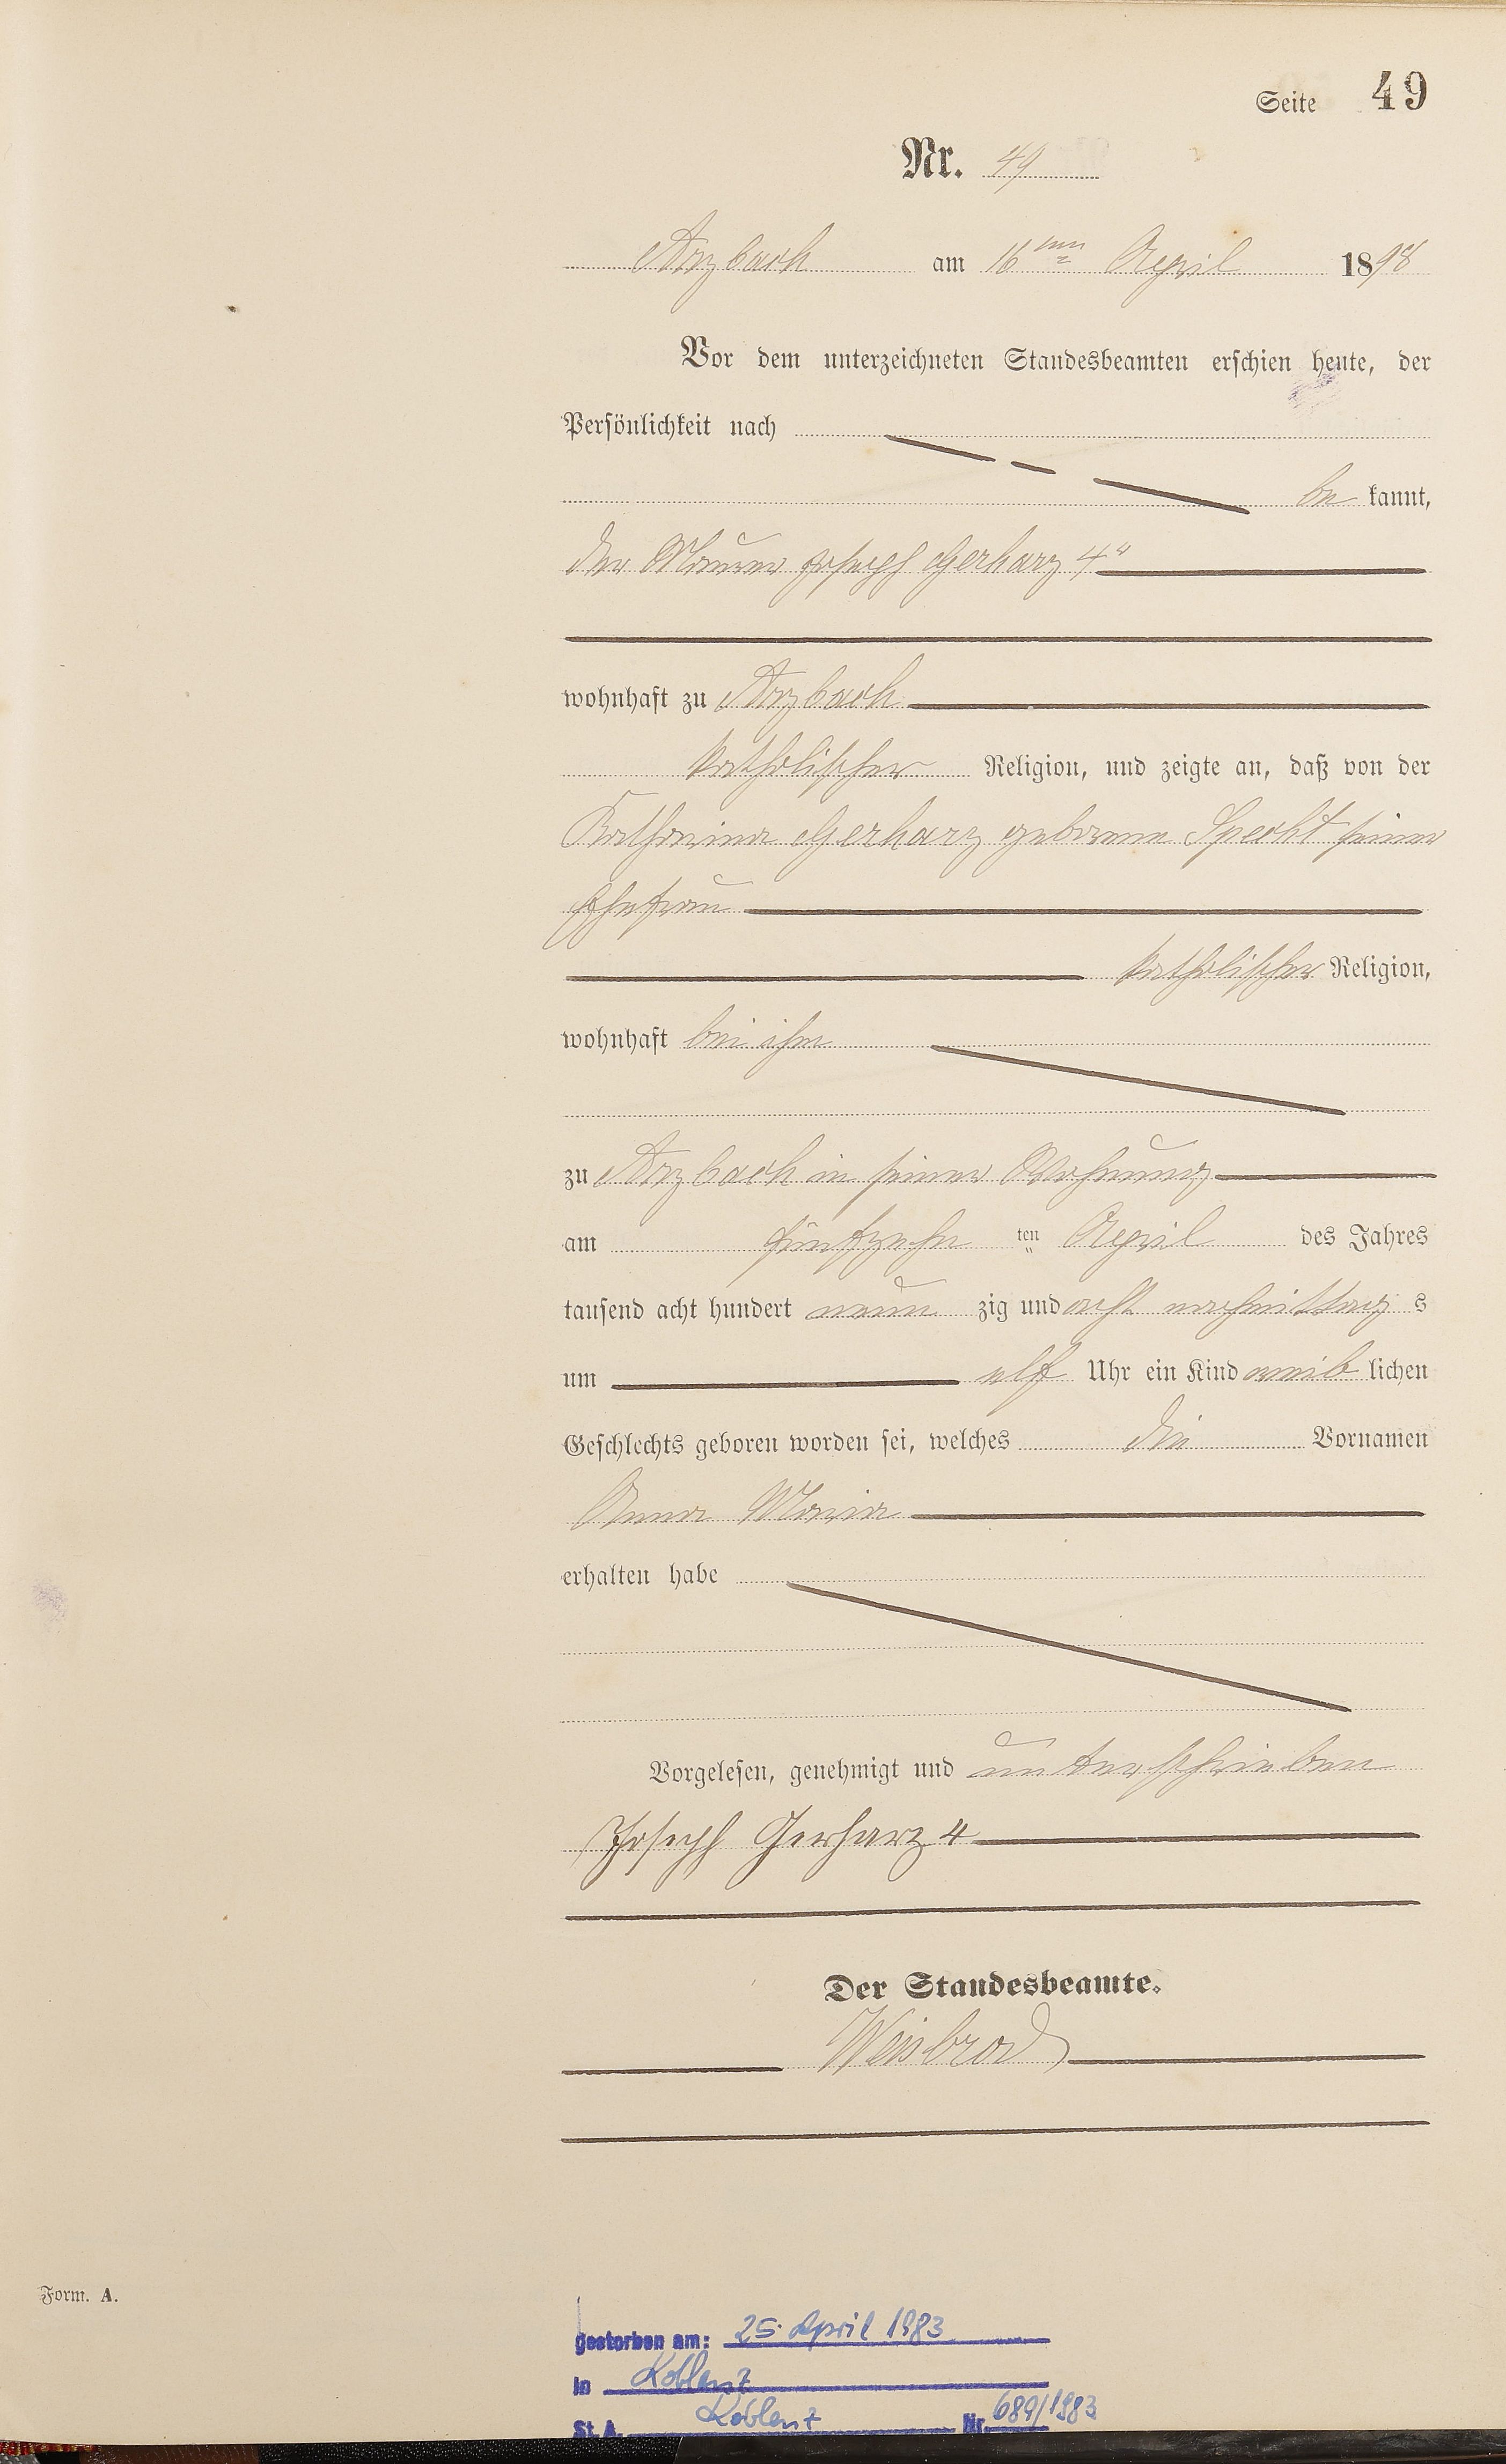 Seite 49
Nr. 49
Arzbach am 16ten April 1898
Vor dem unterzeichneten Standesbeamten erschien heute, der
Persönlichkeit nach
be kannt,
der Maurer Joseph Gerharz 4r
wohnhaft zu Arzbach
katholischer Religion, und zeigte an, daß von der
Katharina Gerharz geborene Specht seiner
Ehefrau
katholischer Religion,
wohnhaft bei ihm
zu Arzbach in seiner Wohnung
am fünfzehn ten April des Jahres
tausend acht hundert neun zig und acht nachmittag s
um elf Uhr ein Kind weib lichen
Geschlechts geboren worden sei, welches die Vornamen
Anna Maria
erhalten habe
Vorgelesen, genehmigt und unterschrieben
Joseph Gerharz 4
Der Standesbeamte.
Weisbrod
Form. A.
gestorben am: 25. April 1983
in Koblenz
St. A. Koblenz Nr. 689/1983